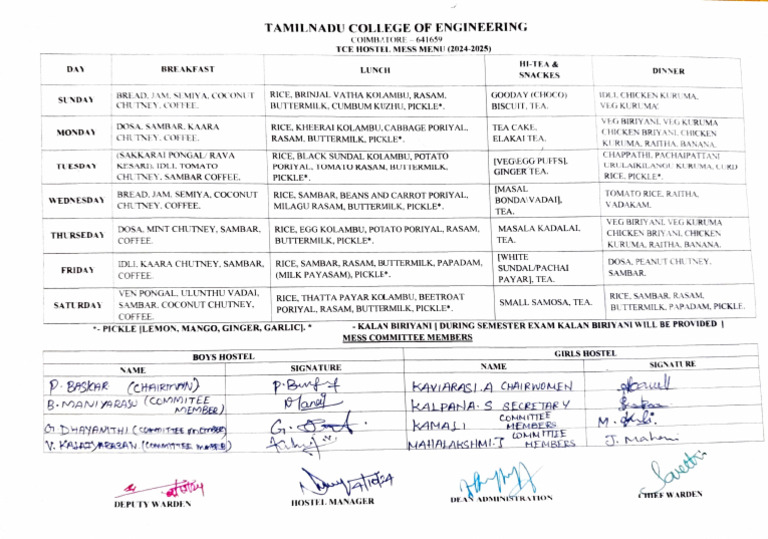 TAMILNADU COLLEGE OF ENGINEERING
COIMBATORE – 641659
TCE HOSTEL MESS MENU (2024-2025)
DAY BREAKFAST LUNCH HI-TEA & SNACKES DINNER
SUNDAY
BREAD, JAM, SEMIYA, COCONUT
CHUTNEY, COFFEE.
RICE, BRINJAL VATHA KOLAMBU, RASAM,
BUTTERMILK, CUMBUM KUZHU, PICKLE*.
GOODAY (CHOCO)
BISCUIT, TEA.
IDLI, CHICKEN KURUMA,
VEG KURUMA.
MONDAY
DOSA, SAMBAR, KAARA
CHUTNEY, COFFEE.
RICE, KHEERAI KOLAMBU, CABBAGE PORIYAL,
RASAM, BUTTERMILK, PICKLE*.
TEA CAKE,
ELAKAI TEA.
VEG BIRIYANI, VEG KURUMA
CHICKEN BRIYANI, CHICKEN
KURUMA, RAITHA, BANANA.
TUESDAY
(SAKKARAI PONGAL/ RAVA
KESARI), IDLI, TOMATO
CHUTNEY, SAMBAR COFFEE.
RICE, BLACK SUNDAL KOLAMBU, POTATO
PORIYAL, TOMATO RASAM, BUTTERMILK,
PICKLE*.
[VEG\EGG PUFFS],
GINGER TEA.
CHAPPATHI, PACHAIPATTANI
URULAIKILANGU KURUMA, CURD
RICE, PICKLE*.
WEDNESDAY
BREAD, JAM, SEMIYA, COCONUT
CHUTNEY, COFFEE.
RICE, SAMBAR, BEANS AND CARROT PORIYAL,
MILAGU RASAM, BUTTERMILK, PICKLE*.
[MASAL
BONDA\VADAI],
TEA.
TOMATO RICE, RAITHA,
VADAKAM.
THURSEDAY
DOSA, MINT CHUTNEY, SAMBAR,
COFFEE.
RICE, EGG KOLAMBU, POTATO PORIYAL, RASAM,
BUTTERMILK, PICKLE*.
MASALA KADALAI,
TEA.
VEG BIRIYANI, VEG KURUMA
CHICKEN BRIYANI, CHICKEN
KURUMA, RAITHA, BANANA.
FRIDAY
IDLI, KAARA CHUTNEY, SAMBAR,
COFFEE.
RICE, SAMBAR, RASAM, BUTTERMILK, PAPADAM,
(MILK PAYASAM), PICKLE*.
[WHITE
SUNDAL/PACHAI
PAYAR], TEA.
DOSA, PEANUT CHUTNEY,
SAMBAR.
SATURDAY
VEN PONGAL, ULUNTHU VADAI,
SAMBAR, COCONUT CHUTNEY,
COFFEE.
RICE, THATTA PAYAR KOLAMBU, BEETROAT
PORIYAL, RASAM, BUTTERMILK, PICKLE*.
SMALL SAMOSA, TEA.
RICE, SAMBAR, RASAM,
BUTTERMILK, PAPADAM, PICKLE.
*- PICKLE [LEMON, MANGO, GINGER, GARLIC]. * - KALAN BIRIYANI [ DURING SEMESTER EXAM KALAN BIRIYANI WILL BE PROVIDED ]
MESS COMMITTEE MEMBERS
BOYS HOSTEL GIRLS HOSTEL
NAME SIGNATURE NAME SIGNATURE
P. BASKAR (CHAIRMAN) KAVIARASI.A CHAIRWOMEN
B. MANIYARASU (COMMITEE MEMBER) KALPANA.S SECRETARY
G DHAYANITHI (COMMITTEE MEMBER) KAMALI COMMITTEE MEMBERS
(COMMITTEE MEMBER) MAHALAKSHMI.J COMMITTEE MEMBERS J. Mahani
DEPUTY WARDEN HOSTEL MANAGER DEAN ADMINISTRATION CHIEF WARDEN